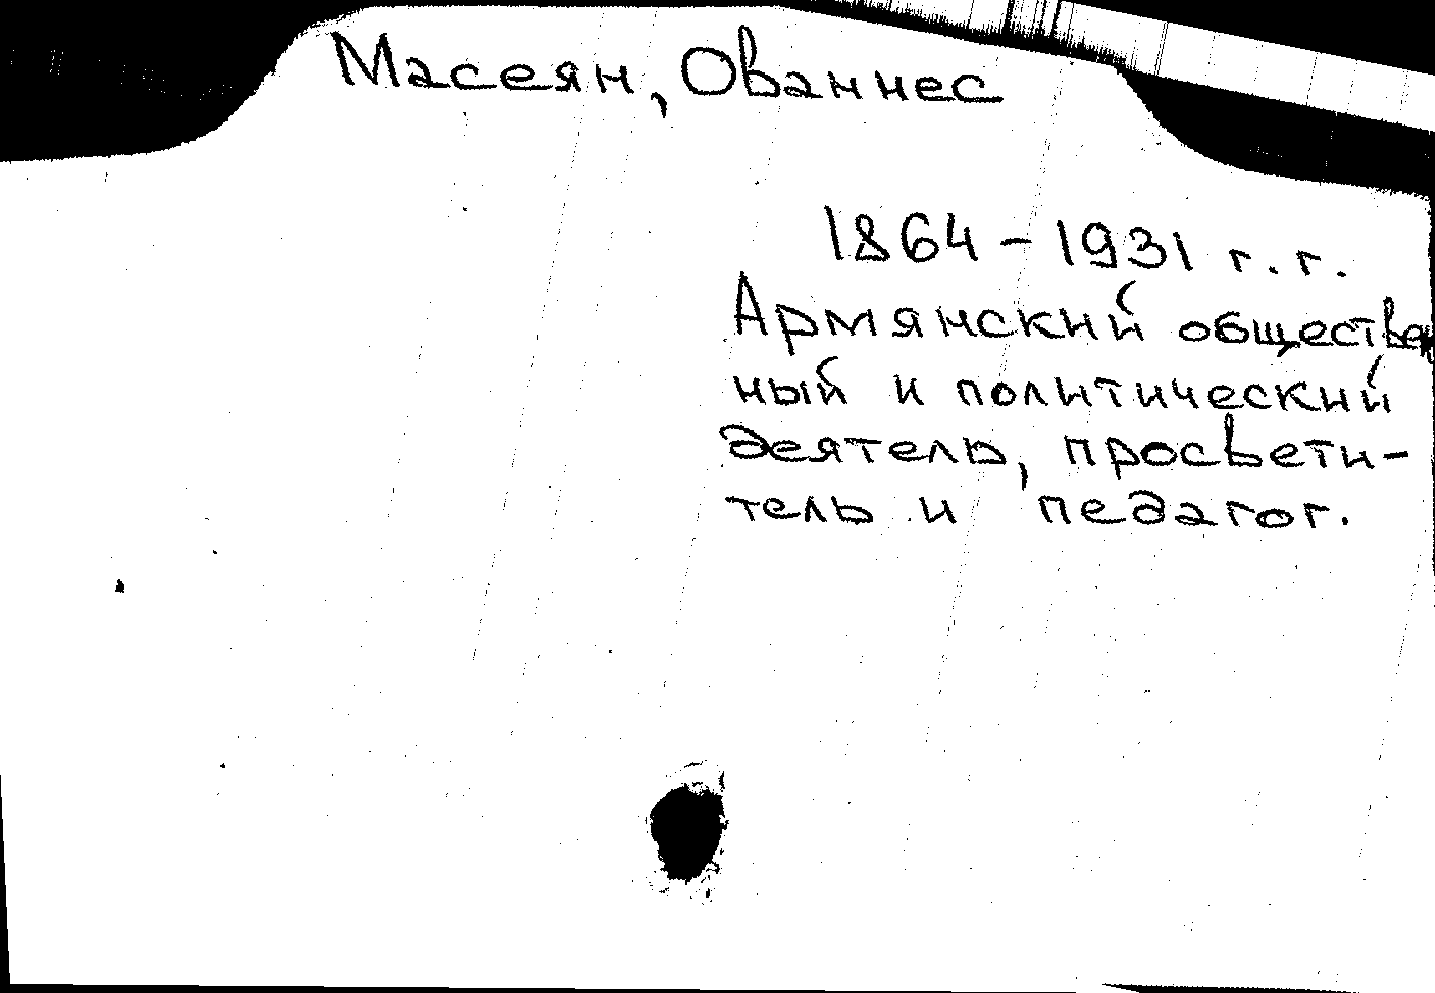 Масеян, Ованнес
1864-1931 г.г.
Армянский обществен
ный и политический
деятель, просвети-
тель и педагог.